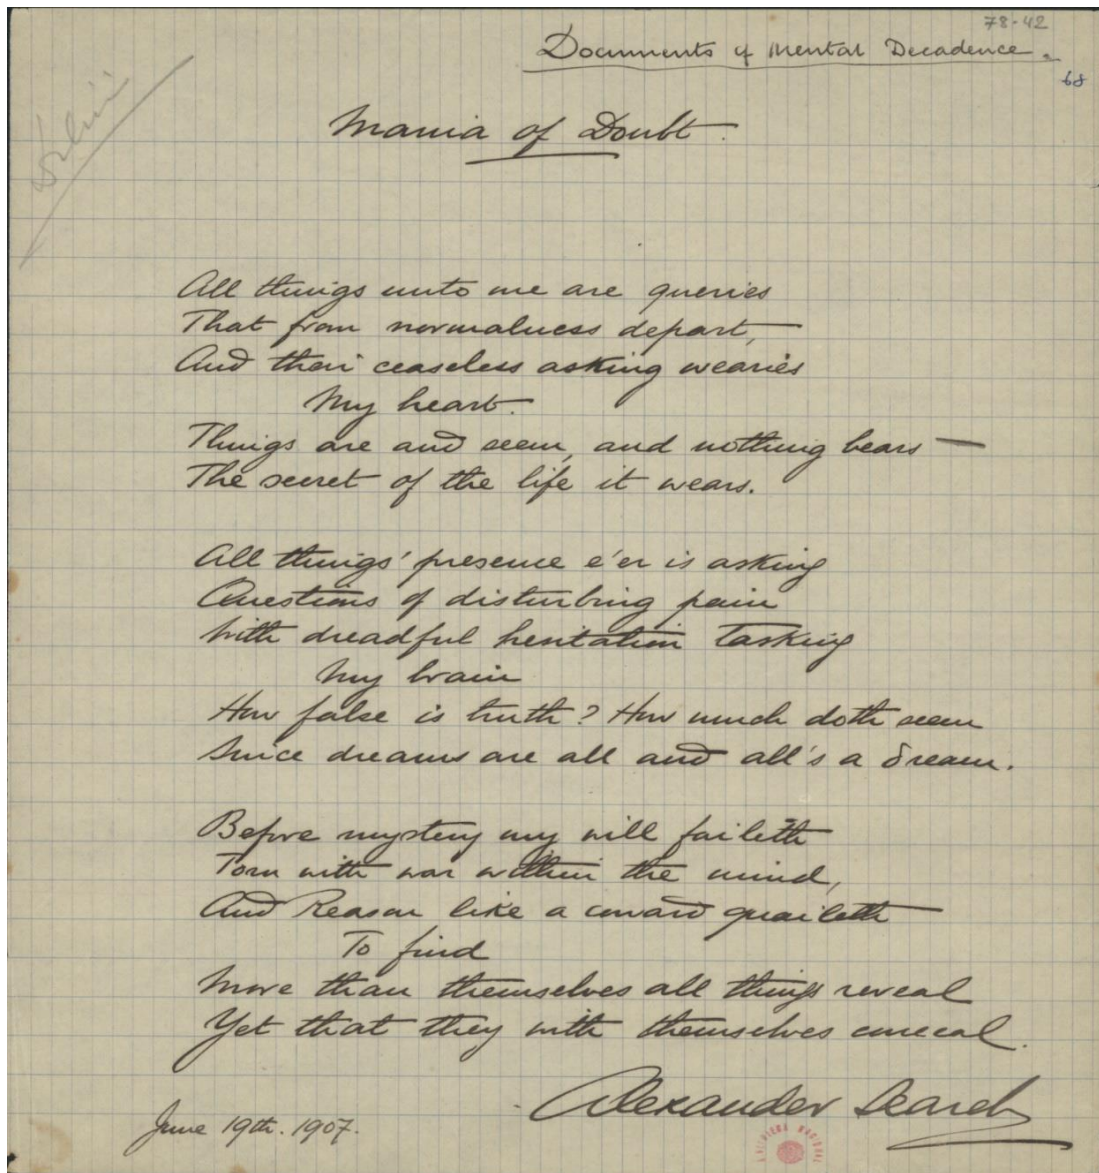 78-42
Documents of Mental Decadence.
68
Delirii
Mania of Doubt.
All things unto me are queries
That from normalness depart,
And their ceaseless asking wearies
My heart.
Things are and seem, and nothing bears
The secret of the life it wears.
All things' presence e'er is asking
Questions of disturbing pain
With dreadful hesitation tasking
My brain
How false is truth? How much doth seem
Since dreams are all and all's a dream.
Before mystery my will faileth
Torn with war within the mind,
And Reason like a coward quaileth
To find
More than themselves all things reveal
Yet that they with themselves conceal.
Alexander Search
June 19th. 1907.
BIBLIOTECA NACIONAL